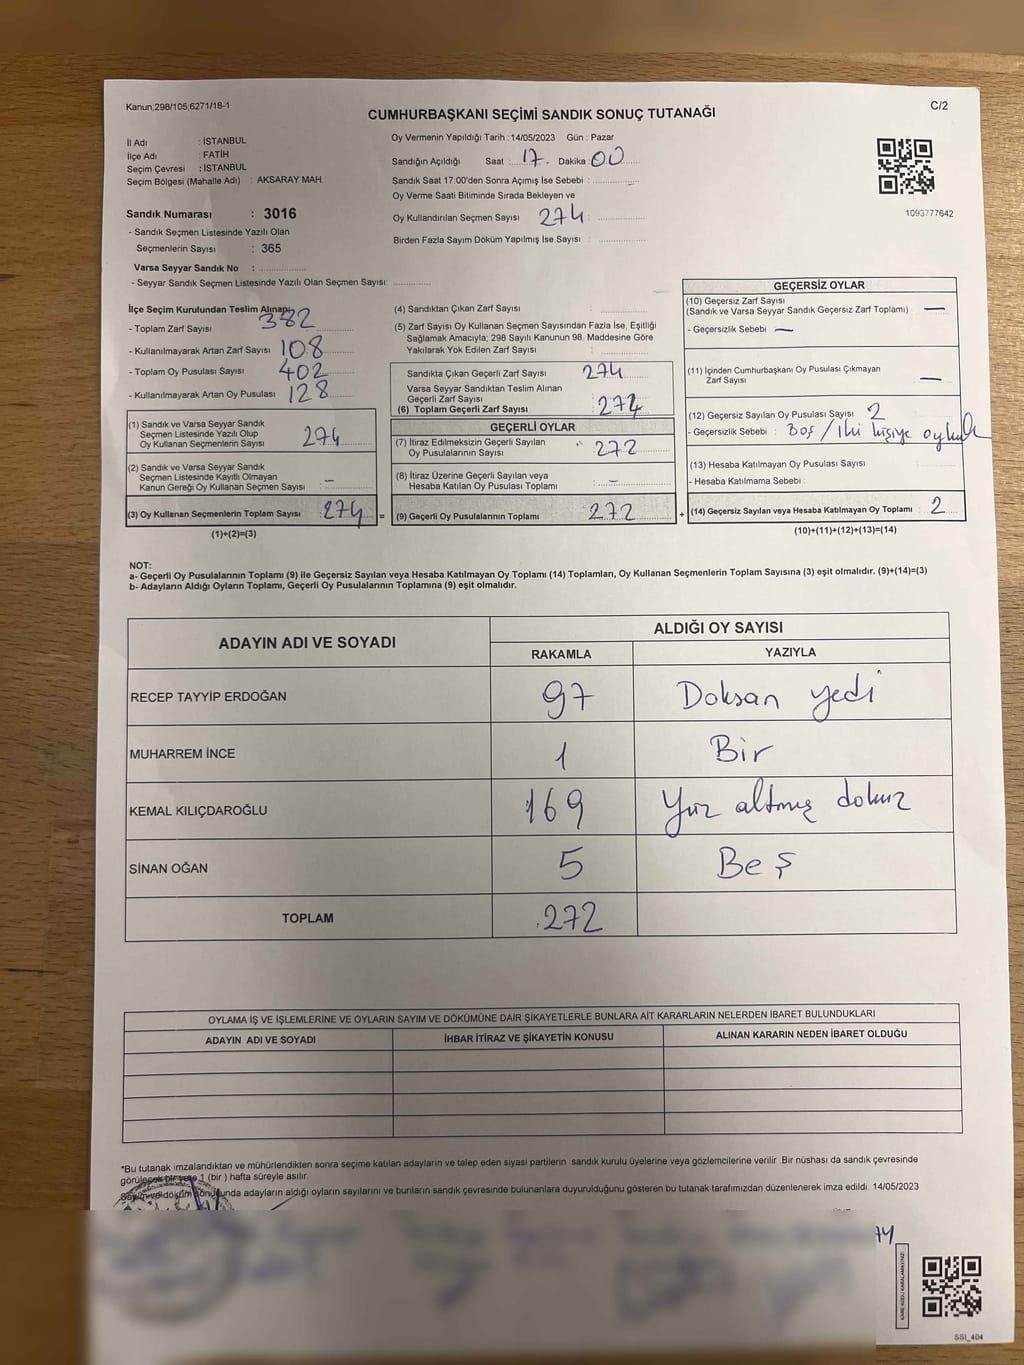 Kanun;298/105;6271/18-1
CUMHURBAŞKANI SEÇİMİ SANDIK SONUÇ TUTANAĞI
C/2
İl Adı : İSTANBUL
İlçe Adı : FATİH
Seçim Çevresi : İSTANBUL
Seçim Bölgesi (Mahalle Adı) : AKSARAY MAH.
Sandık Numarası : 3016
- Sandık Seçmen Listesinde Yazılı Olan
Seçmenlerin Sayısı : 365
Varsa Seyyar Sandık No : ..............
- Seyyar Sandık Seçmen Listesinde Yazılı Olan Seçmen Sayısı: ..............
Oy Vermenin Yapıldığı Tarih : 14/05/2023 Gün : Pazar
Sandığın Açıldığı Saat : 17. Dakika 00
Sandık Saat 17:00'den Sonra Açımış İse Sebebi : ..............
Oy Verme Saati Bitiminde Sırada Bekleyen ve
Oy Kullandırılan Seçmen Sayısı 274 : ..............
Birden Fazla Sayım Döküm Yapılmış İse Sayısı : ..............
1093777642
İlçe Seçim Kurulundan Teslim Alınan;
- Toplam Zarf Sayısı 382
- Kullanılmayarak Artan Zarf Sayısı 108
- Toplam Oy Pusulası Sayısı 402
- Kullanılmayarak Artan Oy Pusulası 128
(1) Sandık ve Varsa Seyyar Sandık
Seçmen Listesinde Yazılı Olup
Oy Kullanan Seçmenlerin Sayısı 274
(2) Sandık ve Varsa Seyyar Sandık
Seçmen Listesinde Kayıtlı Olmayan
Kanun Gereği Oy Kullanan Seçmen Sayısı : -
(3) Oy Kullanan Seçmenlerin Toplam Sayısı 274 =
(1)+(2)=(3)
(4) Sandıktan Çıkan Zarf Sayısı : ..............
(5) Zarf Sayısı Oy Kullanan Seçmen Sayısından Fazla İse, Eşitliği
Sağlamak Amacıyla; 298 Sayılı Kanunun 98. Maddesine Göre
Yakılarak Yok Edilen Zarf Sayısı : ..............
Sandıkta Çıkan Geçerli Zarf Sayısı 274
Varsa Seyyar Sandıktan Teslim Alınan
Geçerli Zarf Sayısı :
(6) Toplam Geçerli Zarf Sayısı : 274
GEÇERLİ OYLAR
(7) İtiraz Edilmeksizin Geçerli Sayılan
Oy Pusulasının Sayısı : 272
(8) İtiraz Üzerine Geçerli Sayılan veya
Hesaba Katılan Oy Pusulası Toplamı : -
(9) Geçerli Oy Pusulalarının Toplamı : 272 +
GEÇERSİZ OYLAR
(10) Geçersiz Zarf Sayısı
(Sandık ve Varsa Seyyar Sandık Geçersiz Zarf Toplamı) : —
- Geçersizlik Sebebi : —
(11) İçinden Cumhurbaşkanı Oy Pusulası Çıkmayan
Zarf Sayısı —
(12) Geçersiz Sayılan Oy Pusulası Sayısı : 2
- Geçersizlik Sebebi : Boş / İki kişiye
(13) Hesaba Katılmayan Oy Pusulası Sayısı
- Hesaba Katılmama Sebebi :
(14) Geçersiz Sayılan veya Hesaba Katılmayan Oy Toplamı : 2
(10)+(11)+(12)+(13)=(14)
NOT:
a- Geçerli Oy Pusulalarının Toplamı (9) ile Geçersiz Sayılan veya Hesaba Katılmayan Oy Toplamı (14) Toplamları, Oy Kullanan Seçmenlerin Toplam Sayısına (3) eşit olmalıdır. (9)+(14)=(3)
b- Adayların Aldığı Oyların Toplamı, Geçerli Oy Pusulalarının Toplamına (9) eşit olmalıdır.
ADAYIN ADI VE SOYADI ALDIĞI OY SAYISI
RAKAMLA YAZIYLA
RECEP TAYYİP ERDOĞAN 97 Doksan yedi
MUHARREM İNCE 1 Bir
KEMAL KILIÇDAROĞLU 169 Yüz altmış dokuz
SİNAN OĞAN 5 Beş
TOPLAM 272
OYLAMA İŞ VE İŞLEMLERİNE VE OYLARIN SAYIM VE DÖKÜMÜNE DAİR ŞİKAYETLERLE BUNLARA AİT KARARLARIN NELERDEN İBARET BULUNDUKLARI
ADAYIN ADI VE SOYADI İHBAR İTİRAZ VE ŞİKAYETİN KONUSU ALINAN KARARIN NEDEN İBARET OLDUĞU
*Bu tutanak imzalandıktan ve mühürlendikten sonra seçime katılan adayların ve talep eden siyasi partilerin sandık kurulu üyelerine veya gözlemcilerine verilir. Bir nüshası da sandık çevresinde
görülecek bir yere 1 (bir) hafta süreyle asılır.
Sayım ve döküm sonuğunda adayların aldığı oyların sayılarını ve bunların sandık çevresinde bulunanlara duyurulduğunu gösteren bu tutanak tarafımızdan düzenlenerek imza edildi. 14/05/2023
SSI_404